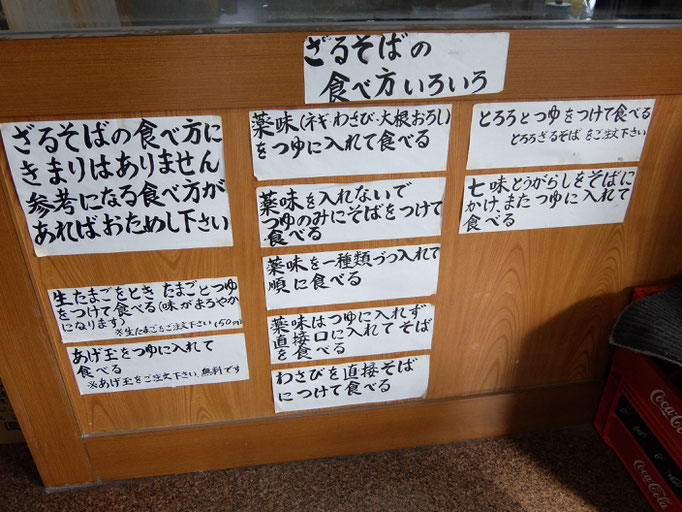 ざるそばの
食べ方いろいろ
ざるそばの食べ方に
きまりはありません
参考になる食べ方が
あればおためし下さい
生たまごをとき たまごとつゆ
をつけて食べる(味がまろやか
になります)
※生たまごをご注文下さい150円
あげ玉をつゆに入れて
食べる
※あげ玉をご注文下さい 無料です
薬味(ネギ・わさび・大根おろし)
をつゆに入れて食べる
薬味を入れないで
つゆのみにそばをつけて
食べる
薬味を一種類づつ入れて
順に食べる
薬味はつゆに入れず
直接口に入れてそば
を食べる
わさびを直接そば
につけて食べる
とろろとつゆをつけて食べる
とろろざるそばをご注文下さい
七味とうがらしをそばに
かけ、またつゆに入れて
食べる
Coca-Cola
Coca-Cola